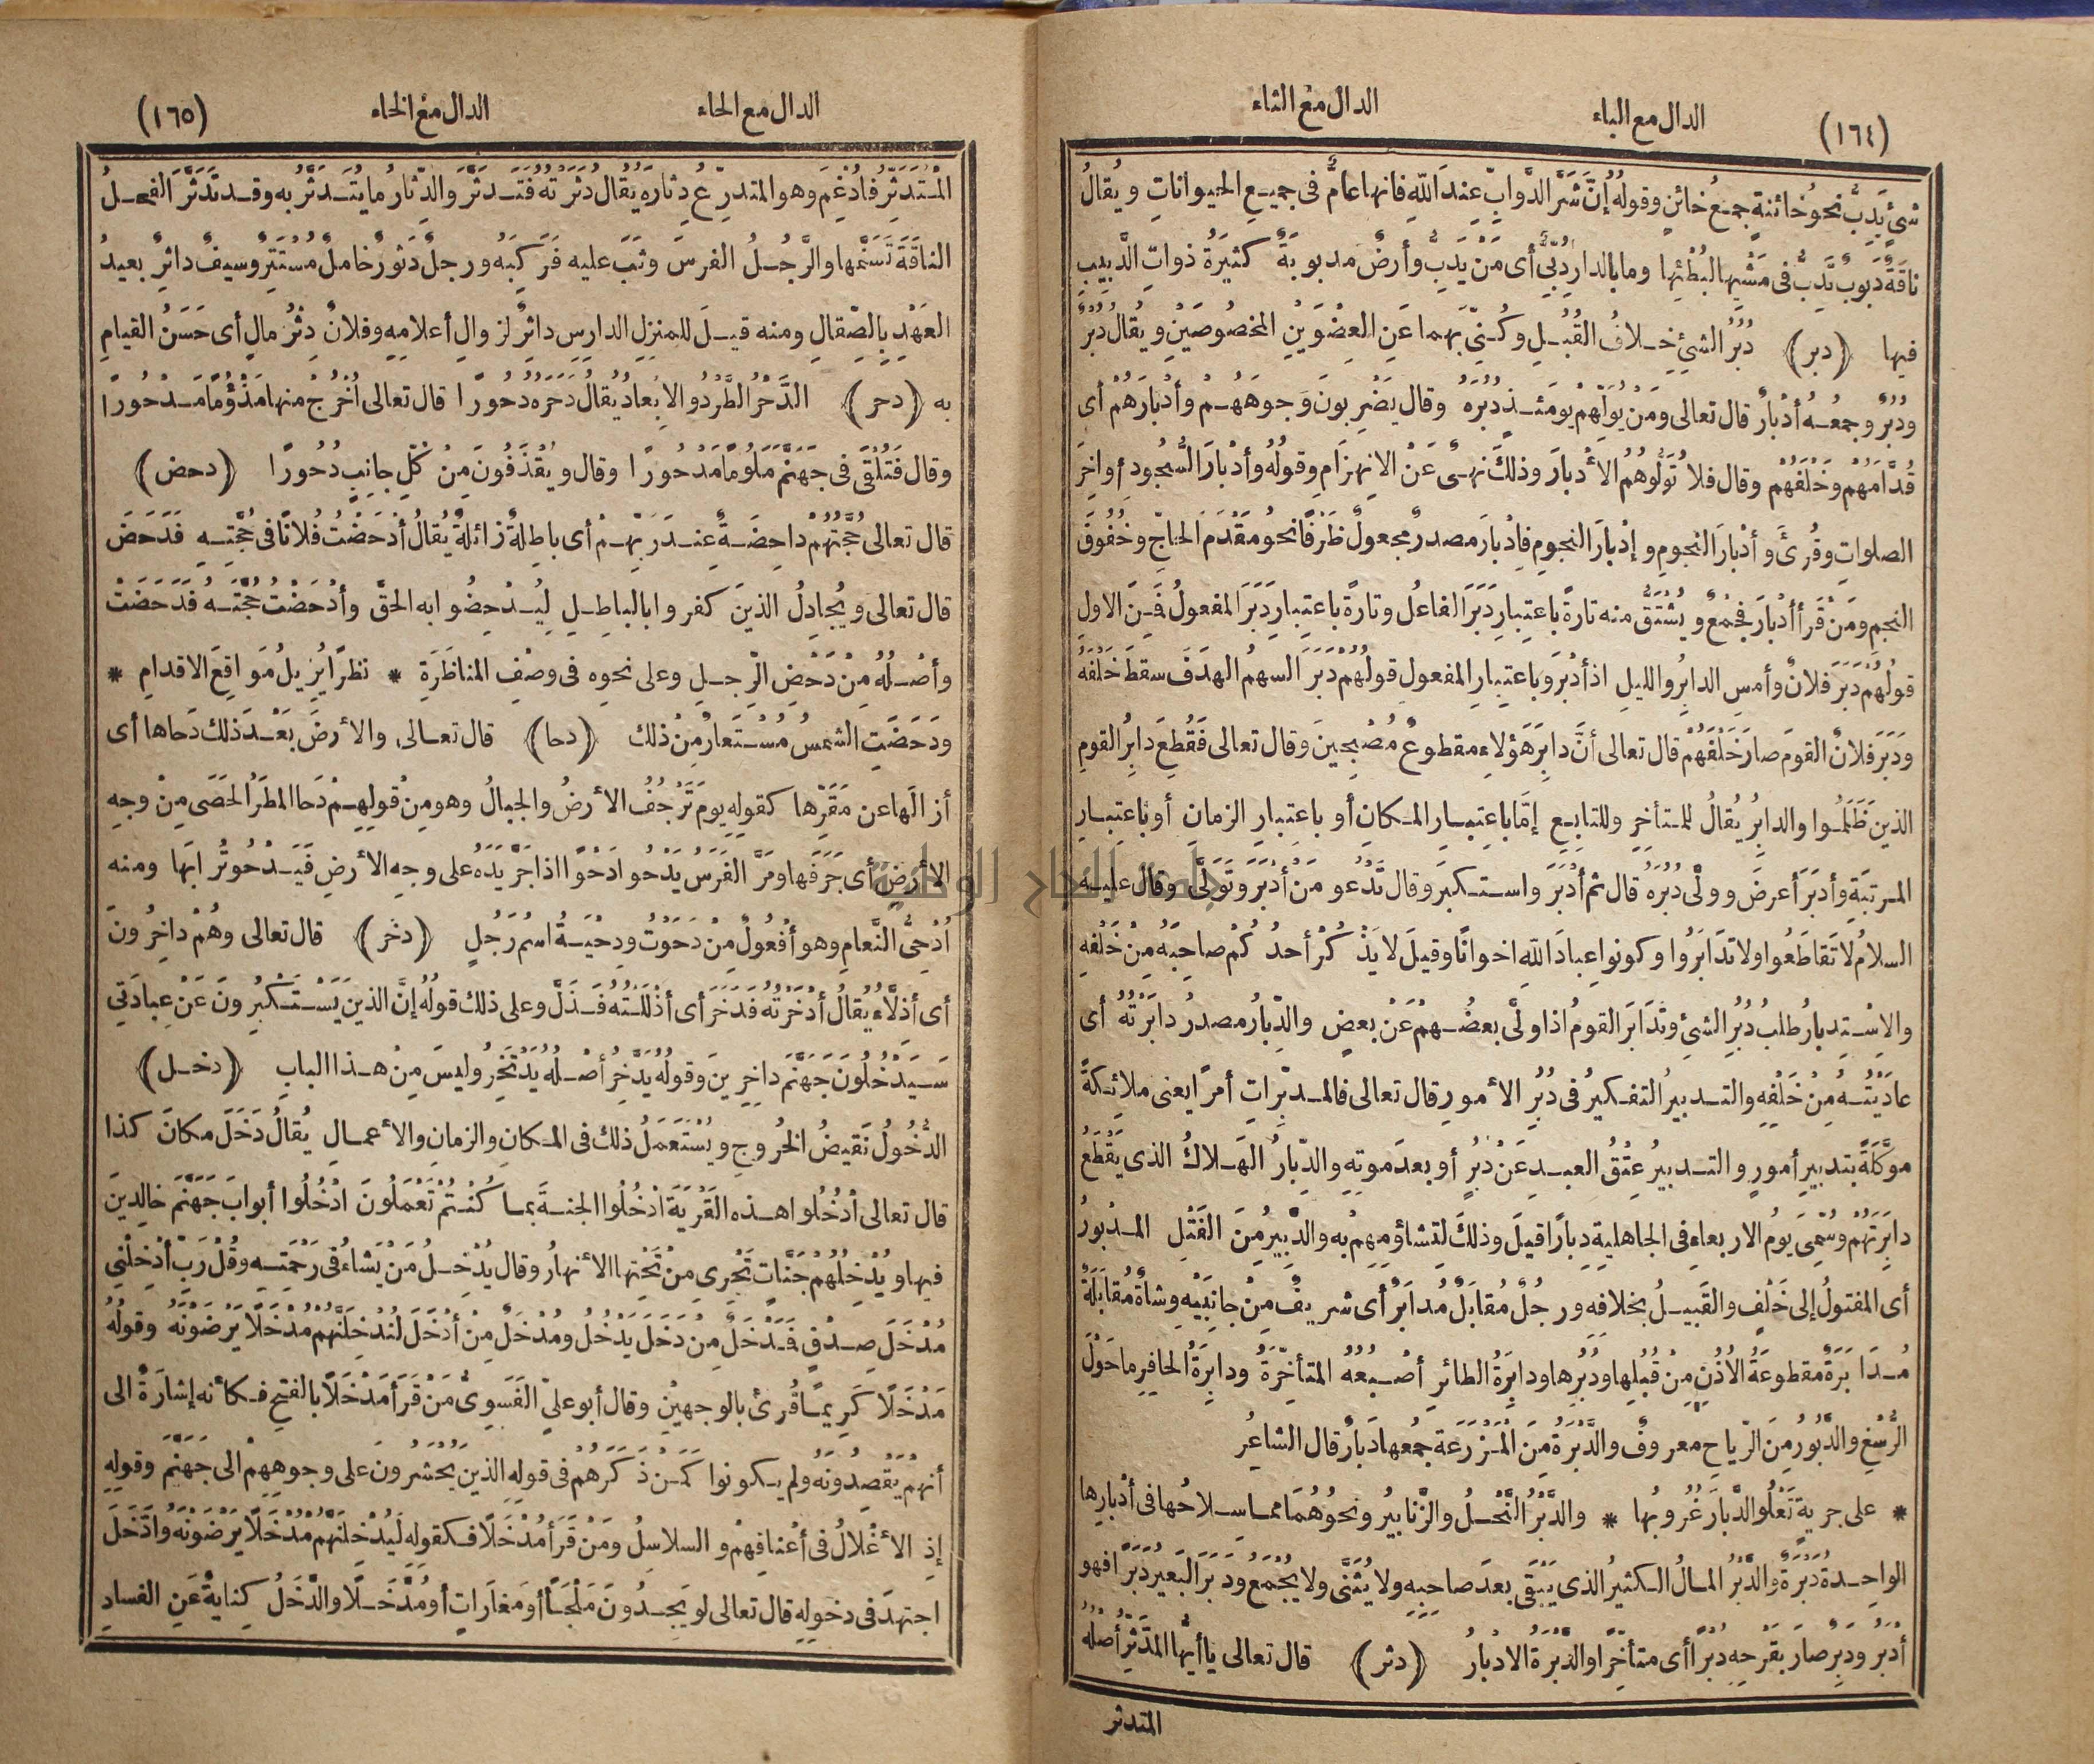 (١٦٤) الدال مع الباء الدال مع الثاء
شئ يَدِبُّ نحوُ خائنةٍ جمعُ خائنٍ وقولُهُ إنَّ شَرَّ الدَّوابِّ عِنْدَ اللّهِ فانها عامٌّ فى جميعِ الحيواناتِ ويُقالُ
ناقَةٌ دَبوبٌ تَدِبُّ فى مَشْيِها لبُطْئِها وما بالدارِ دُبِّىٌّ أى مَنْ يَدِبُّ وأرضٌ مدبوبَةٌ كثيرَةُ ذواتِ الدَّبيبِ
فيها (دبر) دُبُرُ الشئِ خِلافُ القُبُلِ وكُنِّىَ بهما عَنِ العِضْوَيْنِ المخصُوصَيْنِ ويُقالُ دُبْرٌ
ودُبُرٌ وجمعُهُ أدْبارٌ قال تعالى ومَنْ يُوَلِّهِمْ يومَئِذٍ دُبُرَهُ وقال يَضْرِبونَ وجوهَهُمْ وأدْبارَهُمْ أى
قُدَّامَهُمْ وخَلْفَهُمْ وقال فلا تُوَلُّوهُمُ الأدبارَ وذلكَ نهىٌ عَنْ الانهزَامِ وقولُهُ وأدْبارَ السُّجُودِ أواخِرَ
الصلواتِ وقُرِئَ وأدْبارَ النجومِ وإدْبارَ النجومِ فإدْبارَ مصدرٌ مجعولٌ ظَرْفًا نحوُ مَقْدَمَ الحاجِّ وخُفُوقَ
النجمِ ومَنْ قَرأ أدْبارَ فَجْمَعٌ ويُشْتَقُّ منه تارةً باعتِبارِ دَبَرَ الفاعلُ وتارةً باعتِبارِ دَبَرَ المفعولُ فَمِنَ الاولِ
قولُهُمْ دَبَرَ فلانٌ وأمسِ الدابِرُ والليلِ اذ أدْبَرَ وباعتِبارِ المفعولِ قولُهُمْ دَبَرَ السهمُ الهدَفَ سقطَ خَلْفَهُ
ودَبَرَ فلانٌ القومَ صارَ خَلْفَهُمْ قال تعالى أنَّ دابِرَ هؤلاءِ مقطوعٌ مُصْبِحِينَ وقال تعالى فَقُطِعَ دابِرُ القومِ
الذينَ ظَلَمُوا والدابِرُ يُقالُ للمتأخرِ وللتابِعِ إمَّا باعتِبارِ المكانِ أو باعتِبارِ الزمانِ أو باعتِبارِ
المرتبَةِ وأدبَرَ أعرضَ وولَّى دُبُرَهُ قال ثم أدْبَرَ واستكبَرَ وقال تَدْعو مَنْ أدْبَرَ وتَوَلَّى وقال عليه
السلامُ لا تَقاطَعُوا ولا تَدَابَرُوا وكونوا عبادَ اللّهِ اخوانًا وقيلَ لا يَذْكُرْ أحدُكُمْ صاحِبَهُ مِنْ خَلْفِهِ
والاِسْتِدبارُ طلبُ دُبُرِ الشئِ وتَدَابَرَ القومُ اذا ولَّى بعضُهُمْ عَنْ بعضٍ والدِّبارُ مصدرُ دابَرْتُهُ أى
عادَيْتُهُ مِنْ خَلْفِهِ والتدبيرُ التفكيرُ فى دُبُرِ الأمورِ قال تعالى فالمدبِّراتِ أمرًا يعنى ملائكةً
موكَّلَةً بتدبيرِ أمورٍ والتدبيرُ عِتْقُ العبدِ عَنْ دُبُرٍ أو بعدَ موتِهِ والدِّبارُ الهَلاكُ الذى يَقْطَعُ
دابِرَتَهُمْ وسُمِّىَ يومُ الاربعاءِ فى الجاهليةِ دِبارًا قيلَ وذلكَ لِتَشاؤُمِهِمْ به والدَّبِيرُ مِنَ الفَتْلِ المدبُورُ
أى المفتولُ إلى خَلْفٍ والقَبيلُ بخلافِهِ ورجلٌ مُقابَلٌ مُدابَرٌ أى شريفٌ مِنْ جانِبَيْهِ وشاةٌ مُقابَلَةٌ
مُدَابَرَةٌ مقطوعَةُ الأُذُنِ مِنْ قُبُلِها ودُبُرِها ودابِرَةُ الطائرِ أصْبُعُهُ المتأخِّرَةُ ودابِرَةُ الحافِرِ ما حَوْلَ
الرُّسْغِ والدَّبُورُ مِنَ الرِّياحِ معروفٌ والدَّبْرَةُ مِنَ المَزْرَعَةِ جمعُها دَبارٌ قال الشاعِرُ
* على جِريةٍ تَعْلُو الدِّبارَ غُرُوبُها * والدَّبْرُ النَّحْلُ والزَّنابيرُ ونحوُهُمَا مما سِلاحُها فى أدْبارِها
الواحِدةُ دَبْرَةٌ والدَّبْرُ المالُ الكثيرُ الذى يَبْقَى بعدَ صاحِبِهِ ولا يُثَنَّى ولا يُجْمَعُ ودَبَرَ البَعيرُ دَبَرًا فهو
أدْبَرُ ودَبِرٌ صارَ بقَرْحِهِ دُبُرًا أى متأخِّرًا والدَّبْرَةُ الادبارُ (دثر) قال تعالى يا أيُّها المدَّثِّرُ أصْلُهُ
المتدثر
(١٦٥) الدال مع الحاء الدال مع الخاء
المُتَدَثِّرُ فأُدْغِمَ وهو المتدرِّعُ دِثارَهُ يُقالُ دَثَرْتُهُ فَتَدَثَّرَ والدِّثارُ ما يُتَدَثَّرُ به وقد تَدَثَّرَ الفحلُ
الناقَةَ تَسَنَّمَها والرَّجُلُ الفرسَ وثَبَ عليه فَرَكِبَهُ ورجلٌ دَثورٌ خامِلٌ مُسْتَتِرٌ وسيفٌ داثِرٌ بعيدُ
العَهْدِ بالصِّقالِ ومنه قيلَ للمنزلِ الدارِسِ داثِرٌ لزوالِ أعلامِهِ وفلانٌ دِثْرُ مالٍ أى حَسَنُ القيامِ
به (دحر) الدَّحْرُ الطَّرْدُ والابْعادُ يُقالُ دَحَرَهُ دُحُورًا قال تعالى اخْرُجْ منها مَذْؤُمًا مَدْحُورًا
وقال فَتُلْقَى فى جَهَنَّمَ مَلُومًا مَدْحُورًا وقال ويُقْذَفُونَ مِنْ كُلِّ جانِبٍ دُحُورًا (دحض)
قال تعالى حُجَّتُهُمْ داحِضَةٌ عِنْدَ رَبِّهِمْ أى باطِلَةٌ زائلةٌ يُقالُ أدْحَضْتُ فُلانًا فى حُجَّتِهِ فَدَحَضَ
قال تعالى ويُجادِلُ الذينَ كفروا بالباطِلِ لِيُدْحِضُوا به الحقَّ وأدْحَضْتُ حُجَّتَهُ فَدَحَضَتْ
وأصْلُهُ مِنْ دَحْضِ الرِّجلِ وعلى نحوِه فى وصْفِ المناظَرَةِ * نظرًا يُزيلُ مَواقِعَ الاقدامِ *
ودَحَضَتِ الشمسُ مُسْتَعارٌ مِنْ ذلك (دحا) قال تعالى، والأرضَ بَعْدَ ذلك دَحاها أى
أزالَها عن مَقَرِّها كقولِهِ يومَ تَرْجُفُ الأرضُ والجبالُ وهو مِنْ قولِهِمْ دَحا المطَرُ الحَصَى مِنْ وجِهِ
الأرضِ أى جَرَفَها ومَرَّ الفَرَسُ يَدْحُو دَحْوًا اذا جَرَّ يَدَهُ على وجهِ الأرضِ فَيَدْحُو تُرابَها ومنه
أُدْحِىُّ النَّعامِ وهو أُفْعُولٌ مِنْ دَحَوْتُ ودِحْيَةُ اسمُ رَجُلٍ (دخر) قال تعالى وهُمْ داخِرُونَ
أى أذِلَّاءُ يُقالُ أدْخَرْتُهُ فَدَخَرَ أى أذْلَلْتُهُ فَذَلَّ وعلى ذلك قولُهُ إنَّ الذينَ يَسْتَكْبِرُونَ عَنْ عِبادَتِى
سَيَدْخُلُونَ جَهَنَّمَ داخِرِينَ وقولُهُ يَدَّخِرُ أصْلُهُ يَدْتَخِرُ وليسَ مِنْ هذا البابِ (دخل)
الدُّخُولُ نَقيضُ الخُروجِ ويُسْتَعمَلُ ذلك فى المكانِ والزمانِ والأعمالِ يُقالُ دَخَلَ مكانَ كذا
قال تعالى اُدْخُلُوا هذه القَرْيَةَ ادْخُلُوا الجنةَ بما كُنْتُمْ تَعْمَلُونَ ادْخُلُوا أبوابَ جَهَنَّمَ خالِدينَ
فيها ويُدْخِلُهُمْ جَنَّاتٍ تَجْرِى مِنْ تَحْتِها الأنهارُ وقال يُدْخِلُ مَنْ يَشاءُ فى رَحْمَتِهِ وقُلْ رَبِّ أدْخِلْنِى
مُدْخَلَ صِدْقٍ فَمَدْخَلٌ مِنْ دَخَلَ يَدْخُلُ ومُدْخَلٌ مِنْ أدْخَلَ لَنُدْخِلَنَّهُمْ مُدْخَلًا يَرْضَوْنَهُ وقولُهُ
مَدْخَلًا كَرِيمًا قُرِئَ بالوجهَيْنِ وقال أبو علىٍّ الفَسَوِىُّ مَنْ قَرَأ مَدْخَلًا بالفتحِ فكأنه إشارَةٌ الى
أنهمْ يَقْصِدُونَهُ ولم يكونوا كَمَنْ ذَكَرَهُمْ فى قولِهِ الذينَ يُحْشَرُونَ عَلَى وجوهِهِمْ الى جَهَنَّمَ وقولِهِ
إذِ الأغْلالُ فى أعْناقِهِمْ والسلاسِلُ ومَنْ قَرَأ مُدْخَلًا فكقولِهِ لَيُدْخِلَنَّهُمْ مُدْخَلًا يَرْضَوْنَهُ وادَّخَلَ
اجتهدَ فى دخولِهِ قال تعالى لو يَجِدُونَ مَلْجَأً أو مَغاراتٍ أو مُدَّخَلًا والدَّخَلُ كِنايةٌ عَنِ الفسادِ